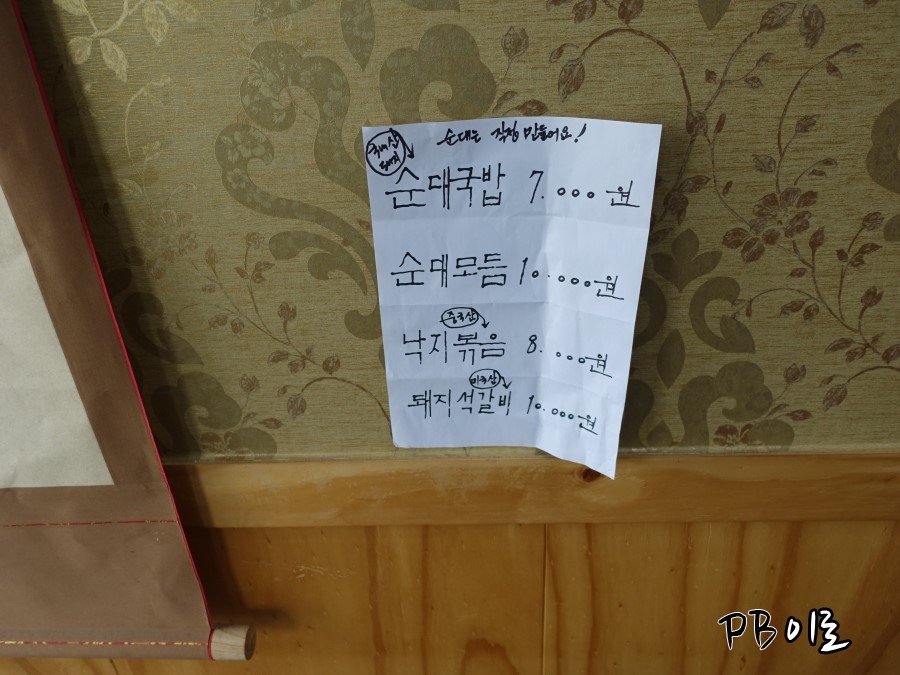 순대는 직접 만들어요!
국내산
돼지
순대국밥 7.000원
순대모듬 10.000원
중국산
낙지볶음 8.000원
미국산
돼지석갈비 10.000원
PB이로